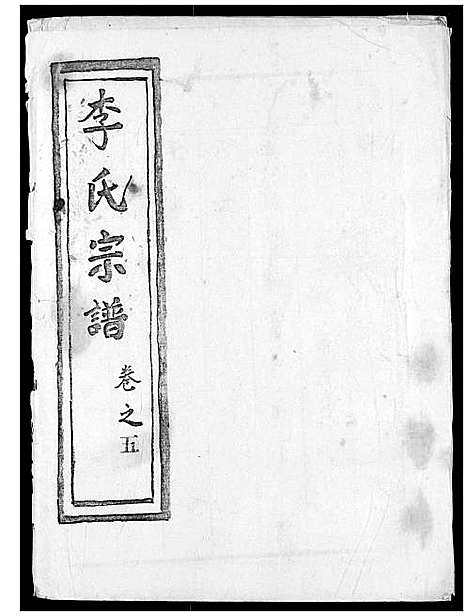 李氏宗譜
卷之五